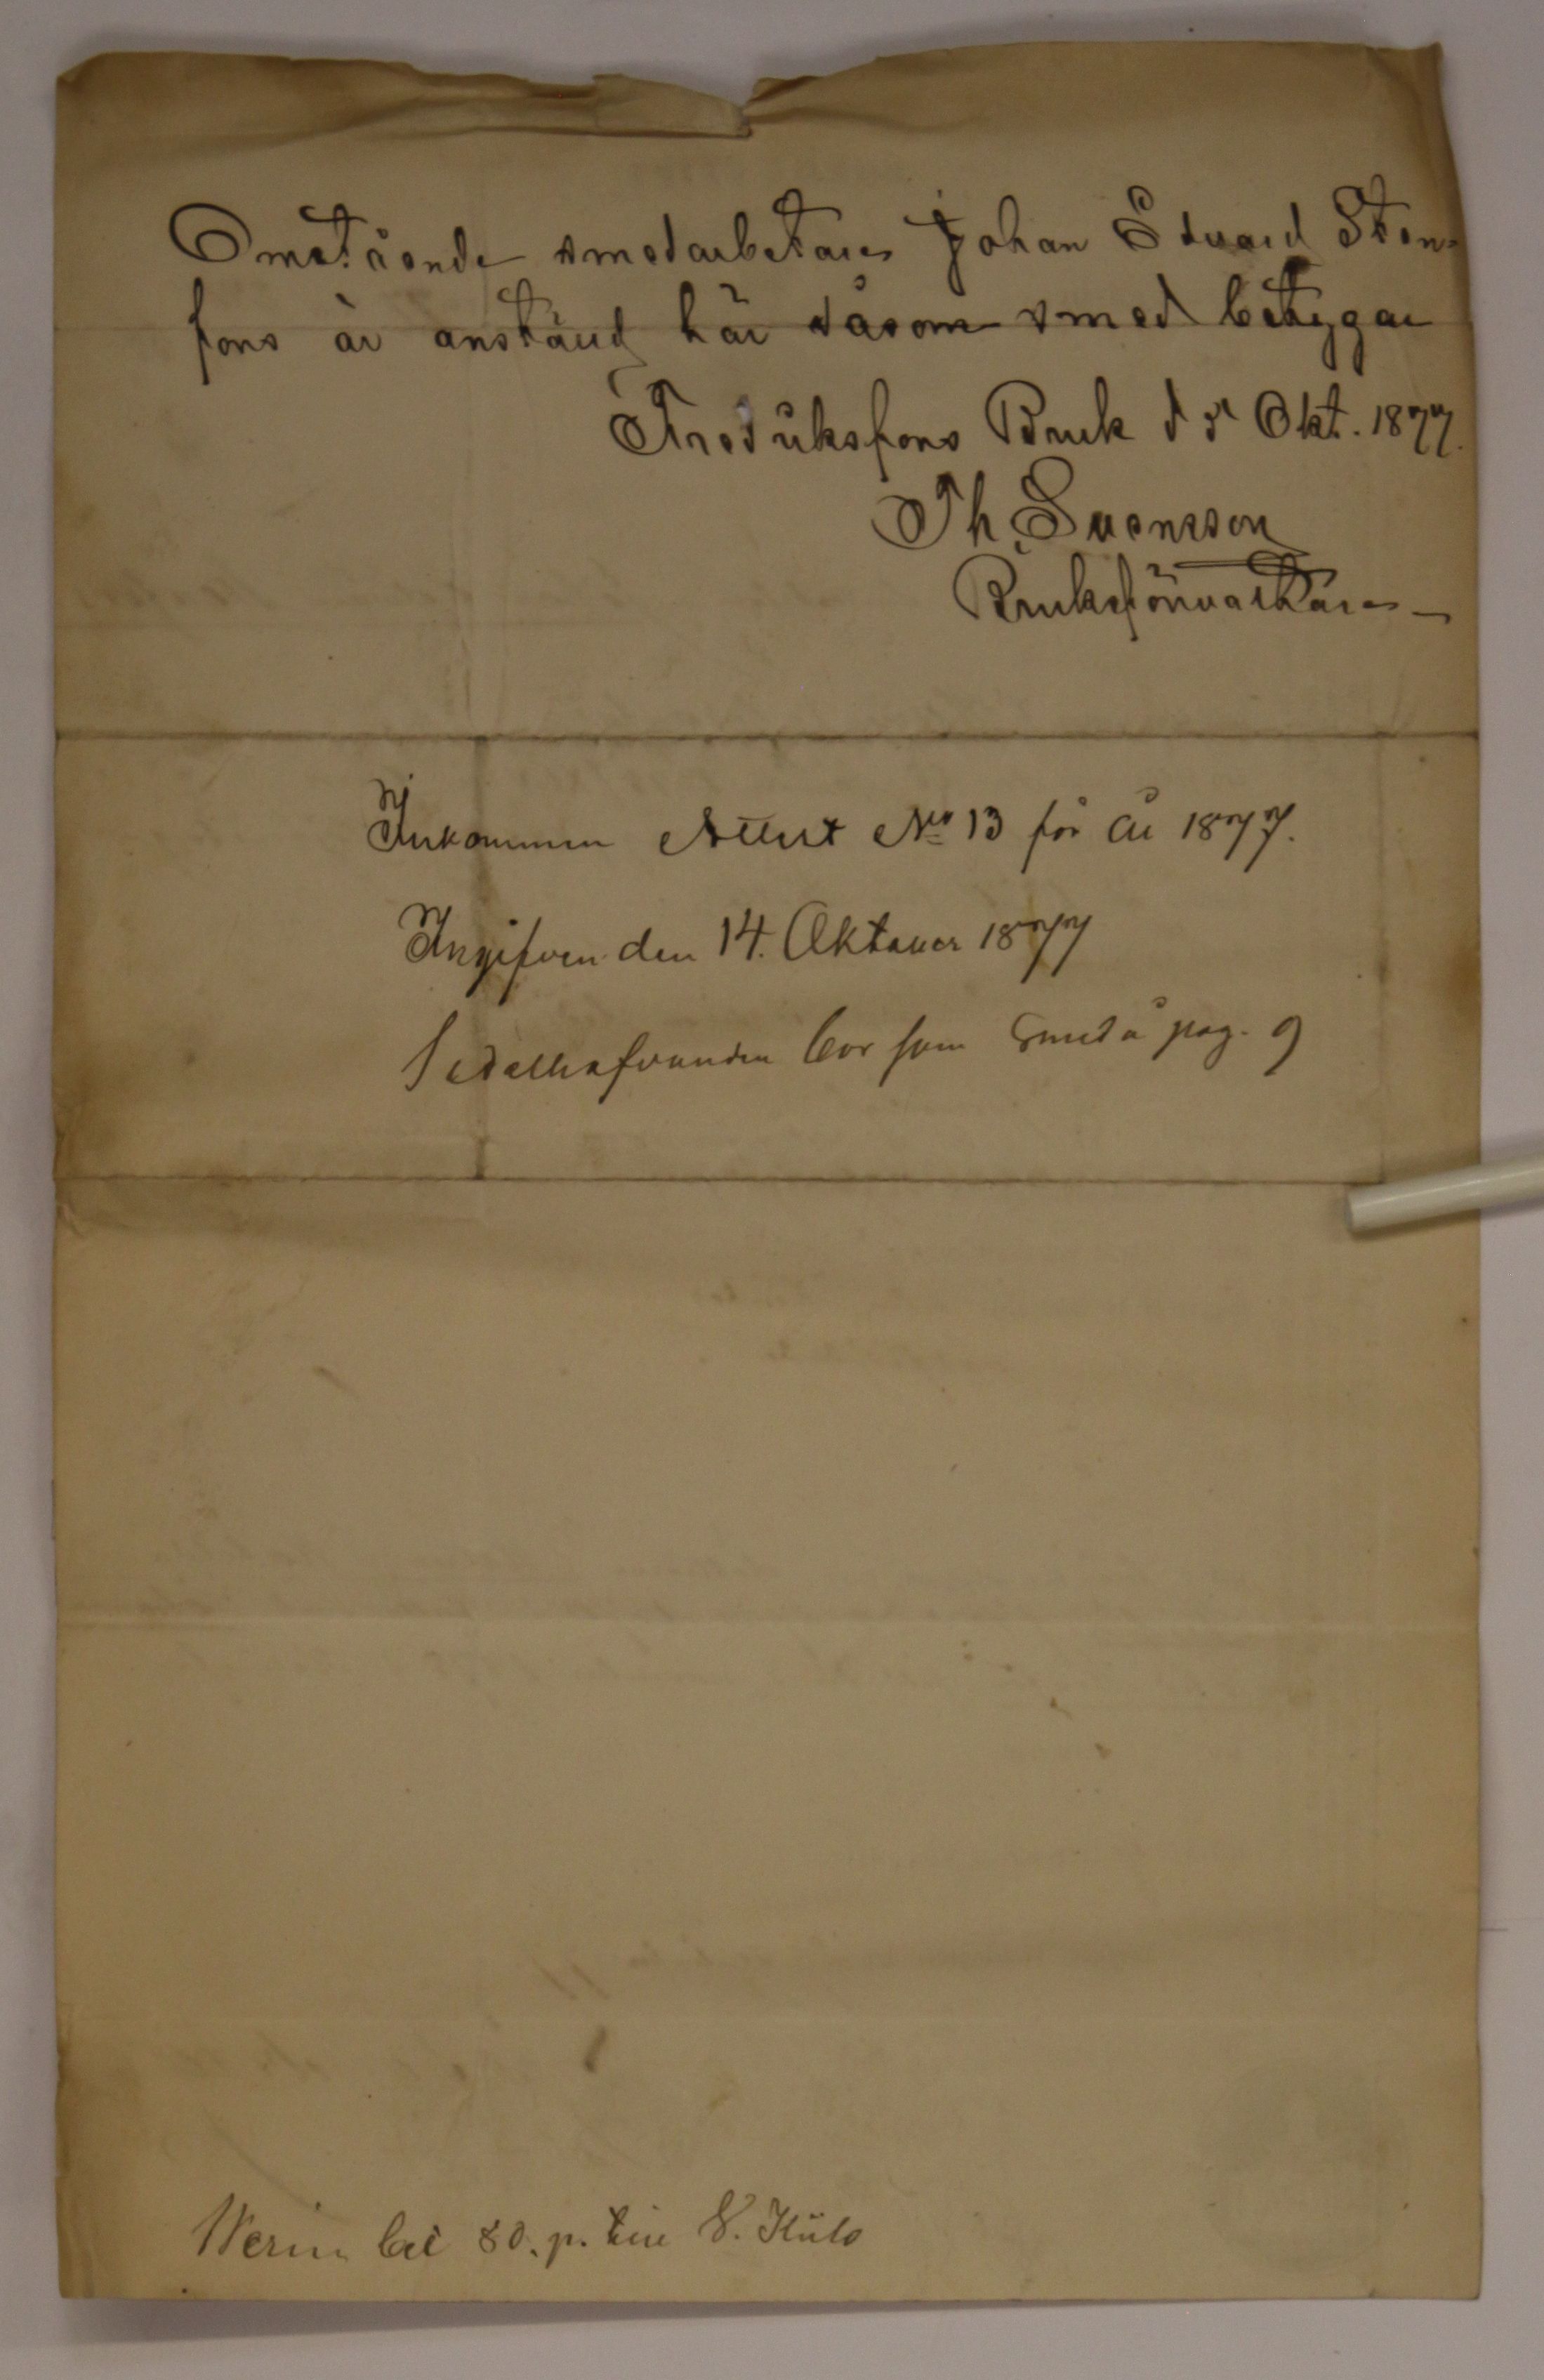 Omstående smedarbetare Johan Edvard Sten-
fors är anstäld här såsom smed betygar
Fredriksfors Bruk d 5 Okt. 1877.
Th. Svensson
Bruksförvaltare
Inkommen Attest No 13 för år 1877.
Ingifven den 14. Oktober 1877
Sedelhafvanden bor som Smed å pag. 9
80. p.